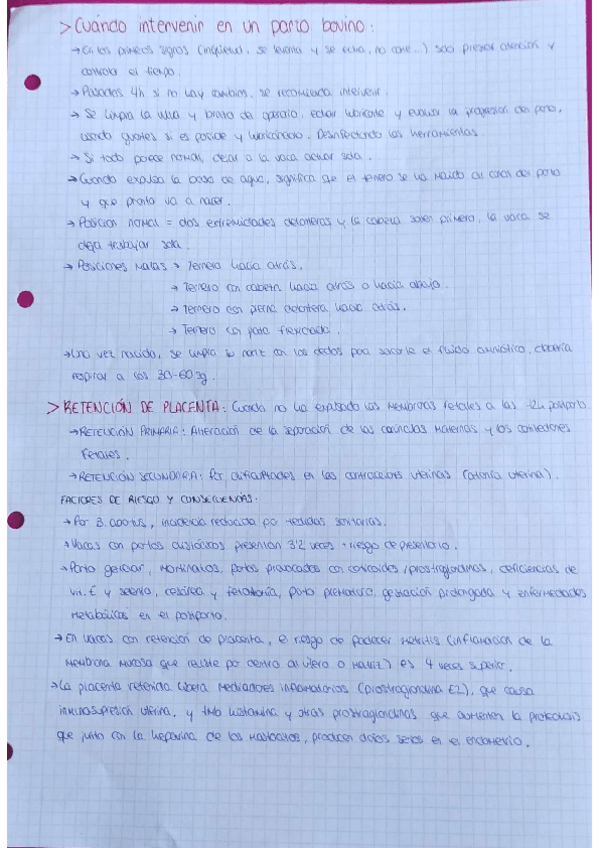 > Cuándo intervenir en un parto bovino:
→ En los primeros signos (inquietud, se levanta y se echa, no come...) solo prestar atención y
controlar el tiempo.
→ Pasadas 4h si no hay cambios, se recomienda intervenir.
→ Se limpia la vulva y brazo de operario, echar lubricante y evaluar la progresión del parto,
usando guantes si es posible y lubricándolo. Desinfectando las herramientas.
→ Si todo parece normal, dejar a la vaca actuar sola.
→ Cuando expulsa la bolsa de agua, significa que el ternero se ha movido al canal del parto
y que pronto va a nacer.
→ Posición normal = dos extremidades delanteras y la cabeza salen primero, la vaca se
deja trabajar sola.
→ Posiciones malas → Ternero hacia atrás.
→ Ternero con cabeza hacia atrás o hacia abajo.
→ Ternero con pierna delantera hacia atrás.
→ Ternero con pata flexionada.
→ Una vez nacido, se limpia la nariz con los dedos para sacarle el fluido amniótico, debería
respirar a los 30-60 sg.
> RETENCIÓN DE PLACENTA: Cuando no ha expulsado las membranas fetales a las 12h postparto
→ RETENCIÓN PRIMARIA: Alteración de la separación de las carúnculas maternas y los cotiledones
fetales.
→ RETENCIÓN SECUNDARIA: Por dificultades en las contracciones uterinas (atonía uterina).
FACTORES DE RIESGO Y CONSECUENCIAS.
→ Por B. abortus, incidencia reducida por medidas sanitarias.
→ Vacas con partos distócicos presentan 3'2 veces + riesgo de presentarlo.
→ Parto gemelar, mortinatos, partos provocados con corticoides/prostaglandinas, deficiencias de
vit. E y selenio, cesárea y fetotomía, parto prematuro, gestación prolongada y enfermedades
metabólicas en el postparto.
→ En vacas con retención de placenta, el riesgo de padecer metritis (inflamación de la
membrana mucosa que reviste por dentro al útero o matriz) es 4 veces superior.
→ La placenta retenida libera mediadores inflamatorios (prostaglandina E2), que causa
inmunosupresión uterina, y tmb histamina y otras prostaglandinas que aumentan la proteólisis
que junto con la heparina de los mastocitos, producen daños serios en el endometrio.